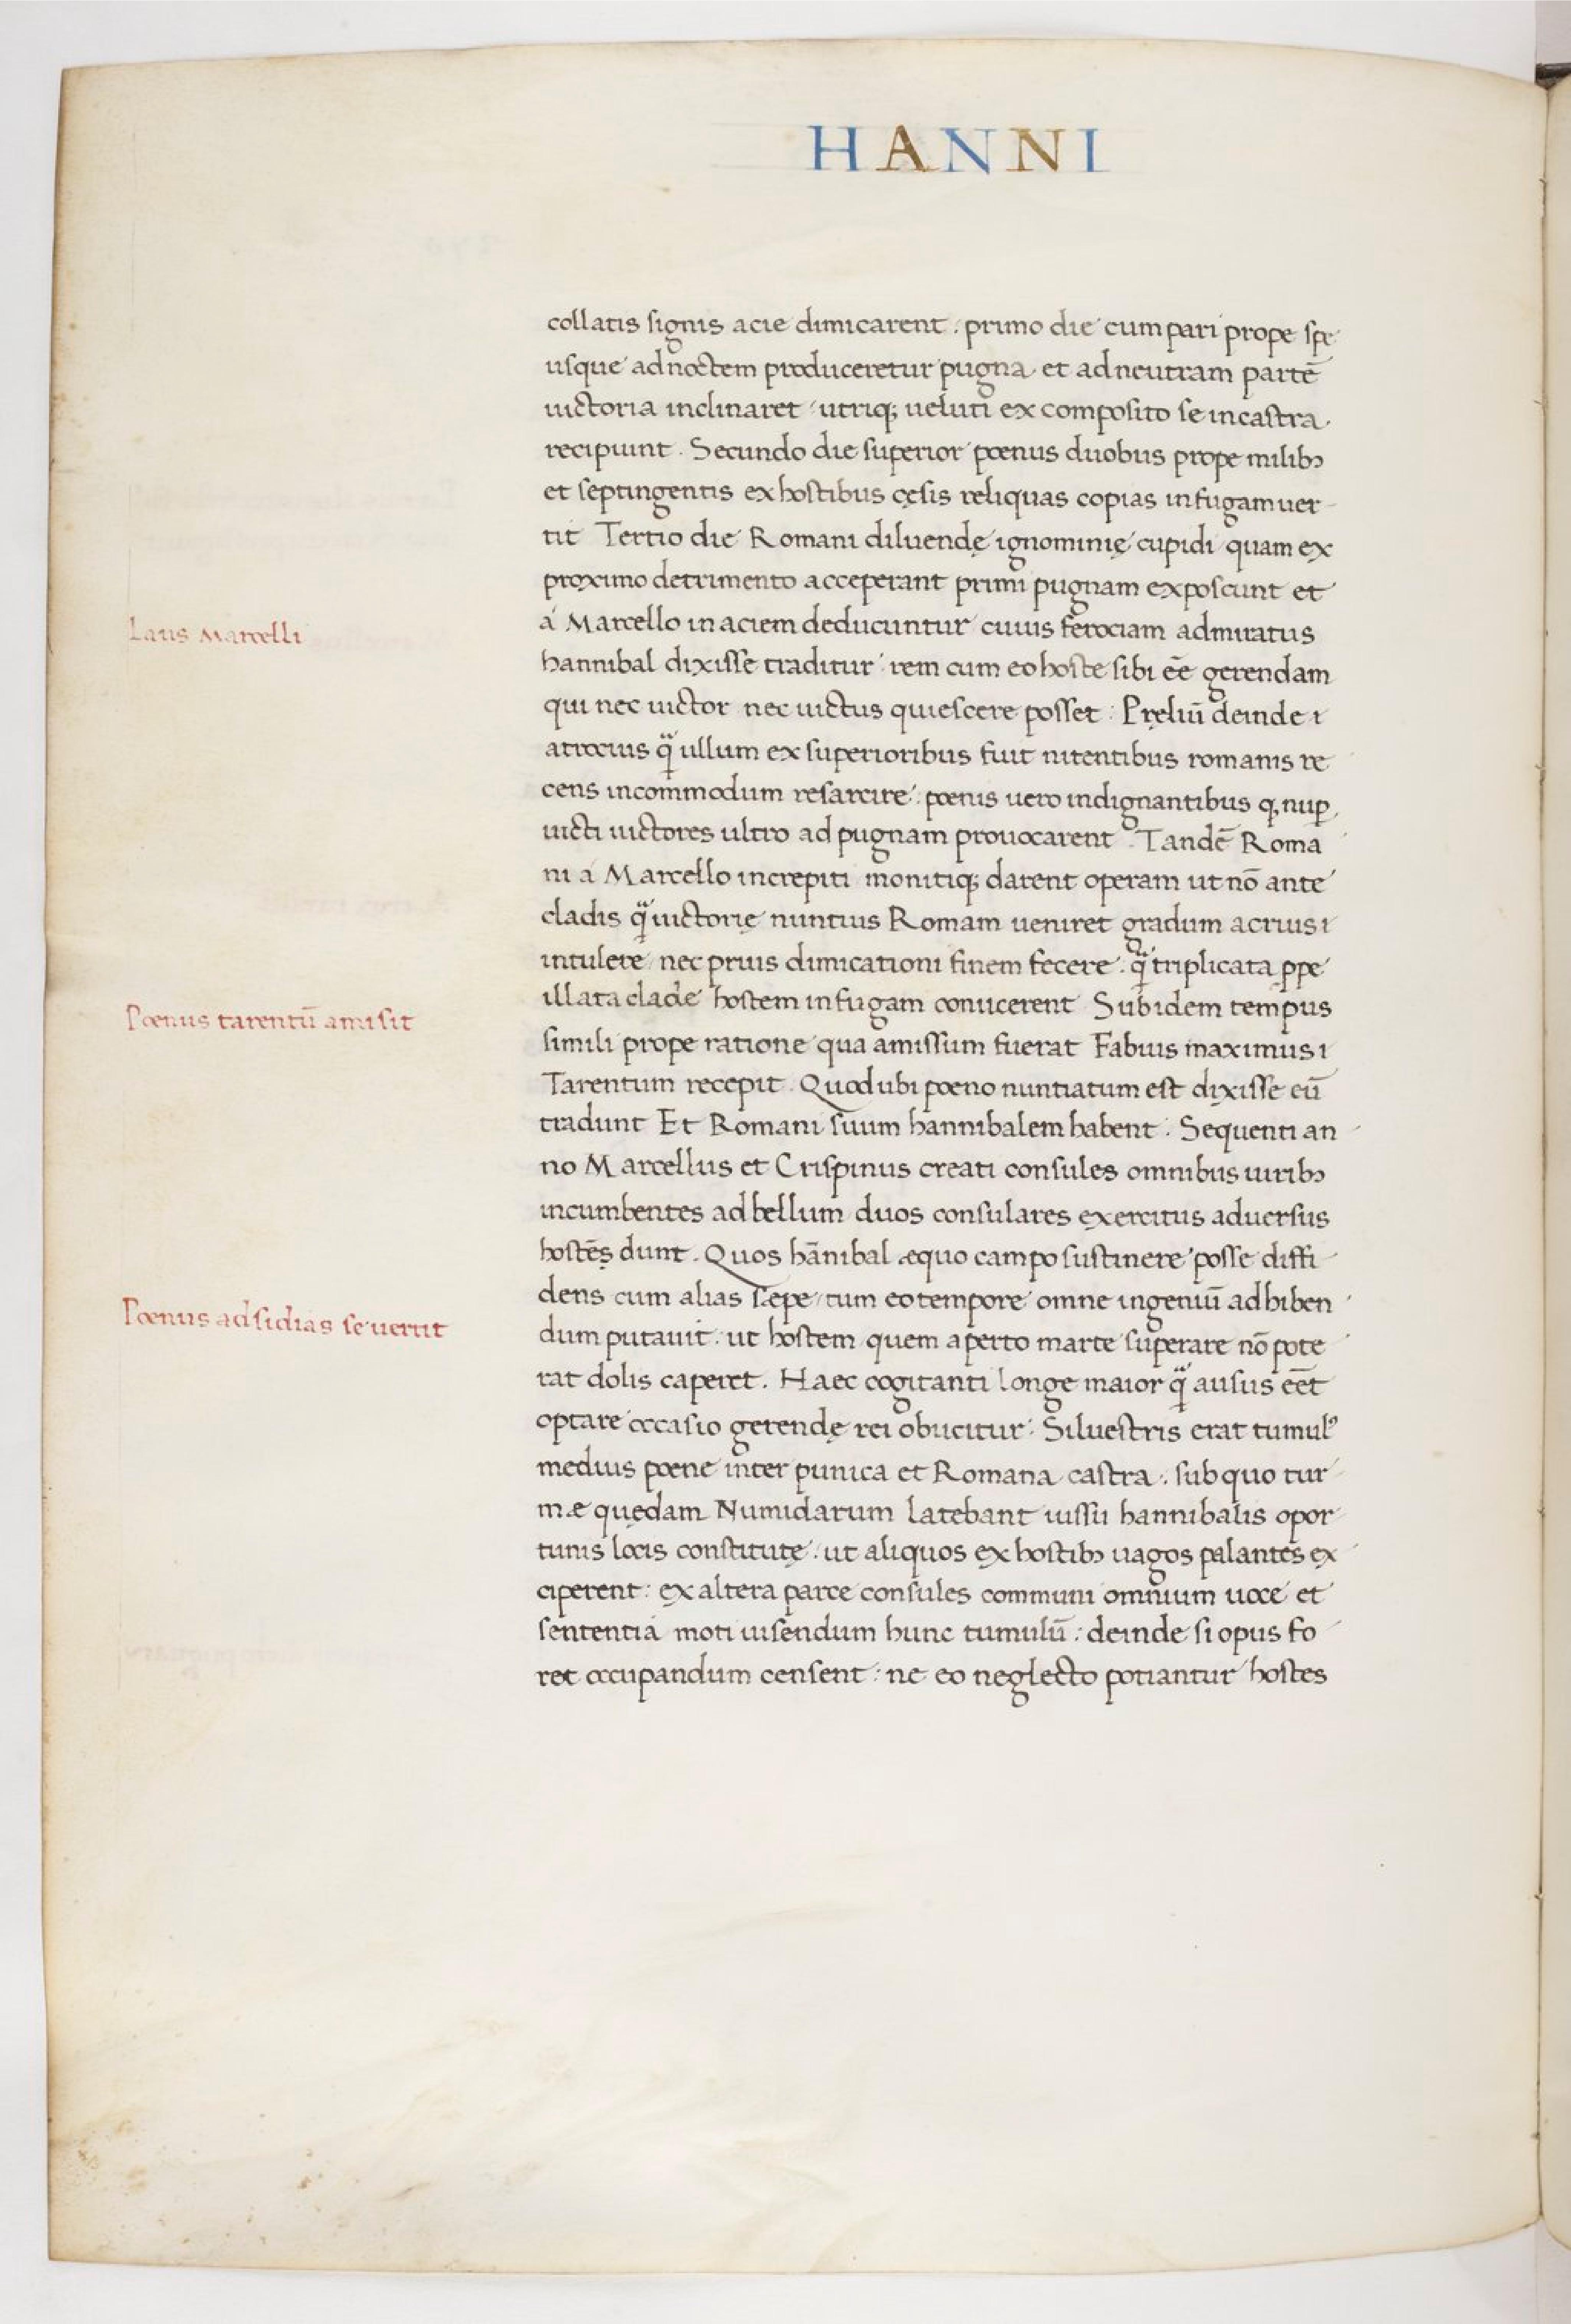 HANNI
collatis signis acie dimicarent : primo die cum pari prope spe
usque ad noctem produceretur pugna et ad neutram partē
uictoria inclinaret utriq; ueluti ex composito se in castra
recipiunt . Secundo die superior pœnus duobus prope milibꝫ
et septingentis ex hostibus cęsis reliquas copias in fugam uer
tit Tertio die Romani diluendę ignominię cupidi quam ex
proximo detrimento acceperant primi pugnam exposcunt et
Laus Marcelli
á Marcello in aciem deducuntur cuius ferociam admiratus
hannibal dixisse traditur : rem cum eo hoste sibi eē gerendam
qui nec uictor nec uictus quiescere posset : Pręliū deinde ı
atrocius q̃ ullum ex superioribus fuit nitentibus romanis re
cens incommodum resarcire : pœnis uero indignantibus q, nuꝑ
uicti uictores ultro ad pugnam prouocarent . Tandē Roma
ni á Marcello increpiti monitiq; darent operam ut nō ante
cladis q̃ uictorię nuntius Romam ueniret gradum acrius ı
intulere nec prius dimicationi finem fecere : q̃ triplicata ꝓpe
illata clade hostem in fugam coniicerent Sub idem tempus
Pœnus tarentū amisit
simili prope ratione qua amissum fuerat Fabius maximus ı
Tarentum recepit . Quod ubi pœno nuntiatum est dixisse eū
tradunt Et Romani suum hannibalem habent . Sequenti an
no Marcellus et Crispinus creati consules omnibus uiribꝫ
incumbentes ad bellum duos consulares exercitus aduersus
hostēs dunt . Quos hānibal æquo campo sustinere posse diffi
dens cum alias sæpe tum eo tempore omne ingeniū adhiben
Pœnus ad sidias se uertit
dum putauit : ut hostem quem aperto marte superare nō pote
rat dolis caperet . Haec cogitanti longe maior q̃ ausus eēt
optare occasio gerendę rei obiicitur : Siluestris erat tumulꝰ
medius pœne inter punica et Romana castra : sub quo tur
mæ quędam Numidarum latebant iussu hannibalis opor
tunis locis constitutę : ut aliquos ex hostibꝫ uagos palantes ex
ciperent : ex altera parte consules communi omnium uoce et
sententia moti uisendum hunc tumulū : deinde si opus fo
ret occupandum censent : ne eo neglecto potiantur hostes